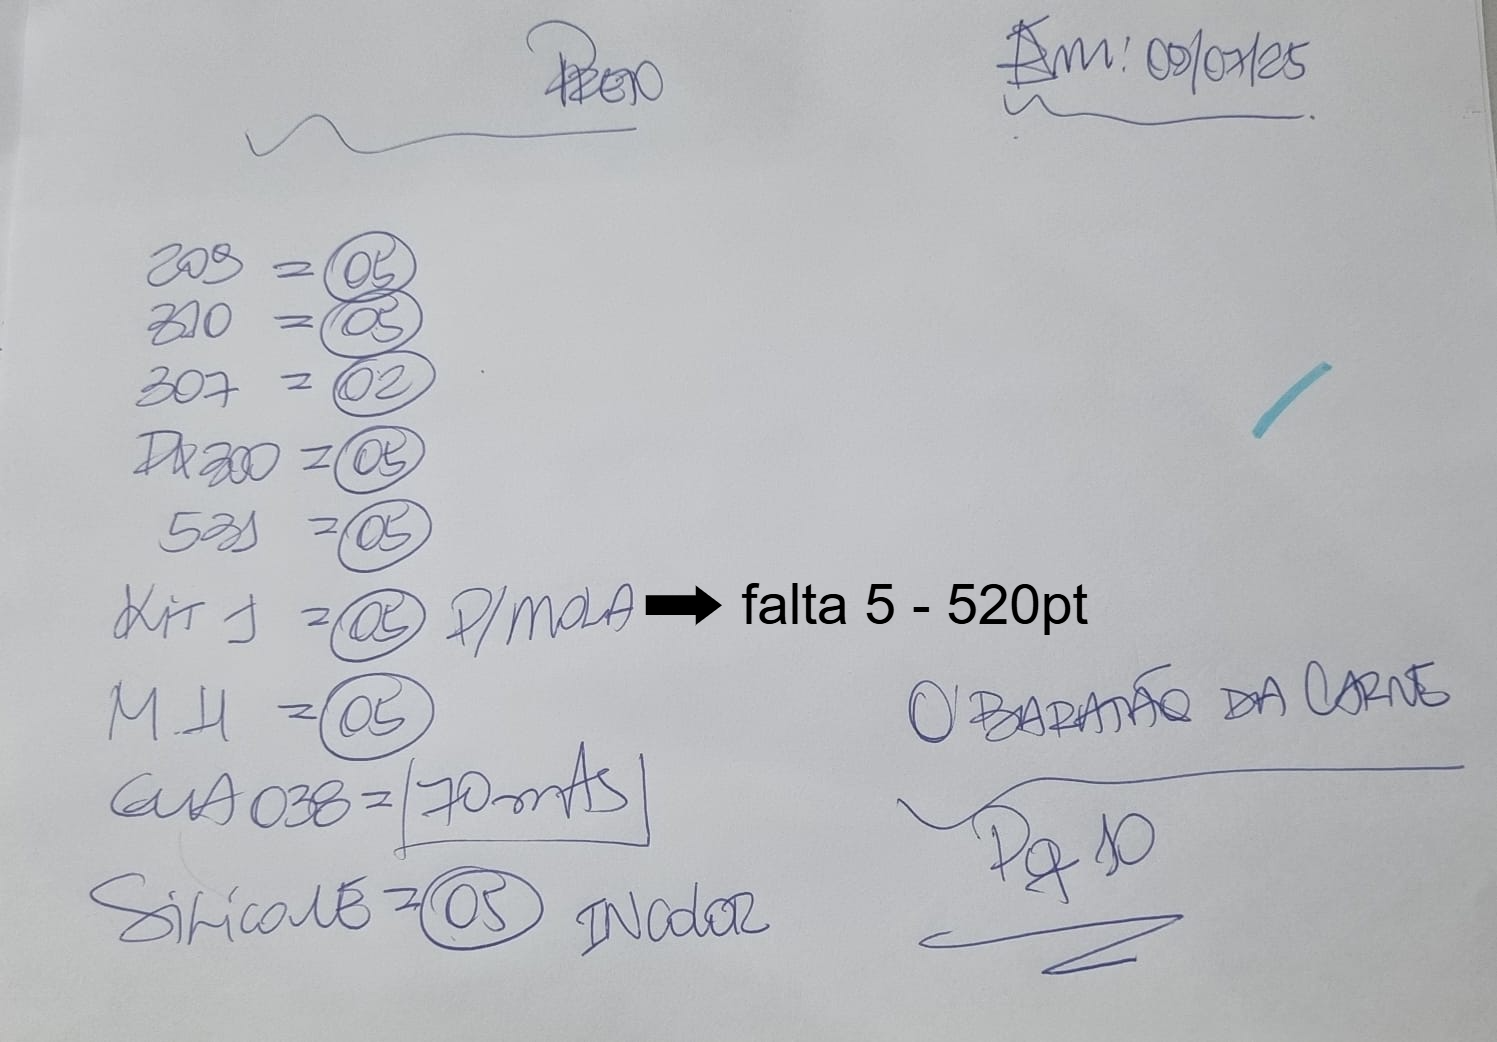 Em: 09/07/25
209 = 05
310 = 05
307 = 02
300 = 05
531 = 05
KiT 1 = 05 P/MOLA → falta 5 - 520pt
M.H = 05
038 = 70 mts
SiLiconE = 05 INcoloR
O BARATÃO DA CARNE
Pg 10